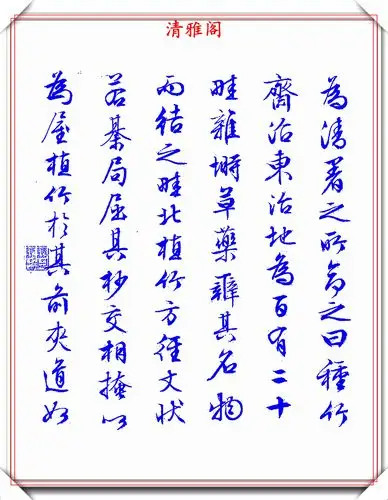 清雅阁
為清署之所命之曰種竹
齊沼東治地為百有二十
畦雜塒草藥辨其名物
而结之畦北植竹方徑丈状
若棊局屈其杪交相掩以
為屋植竹於其前夾道如